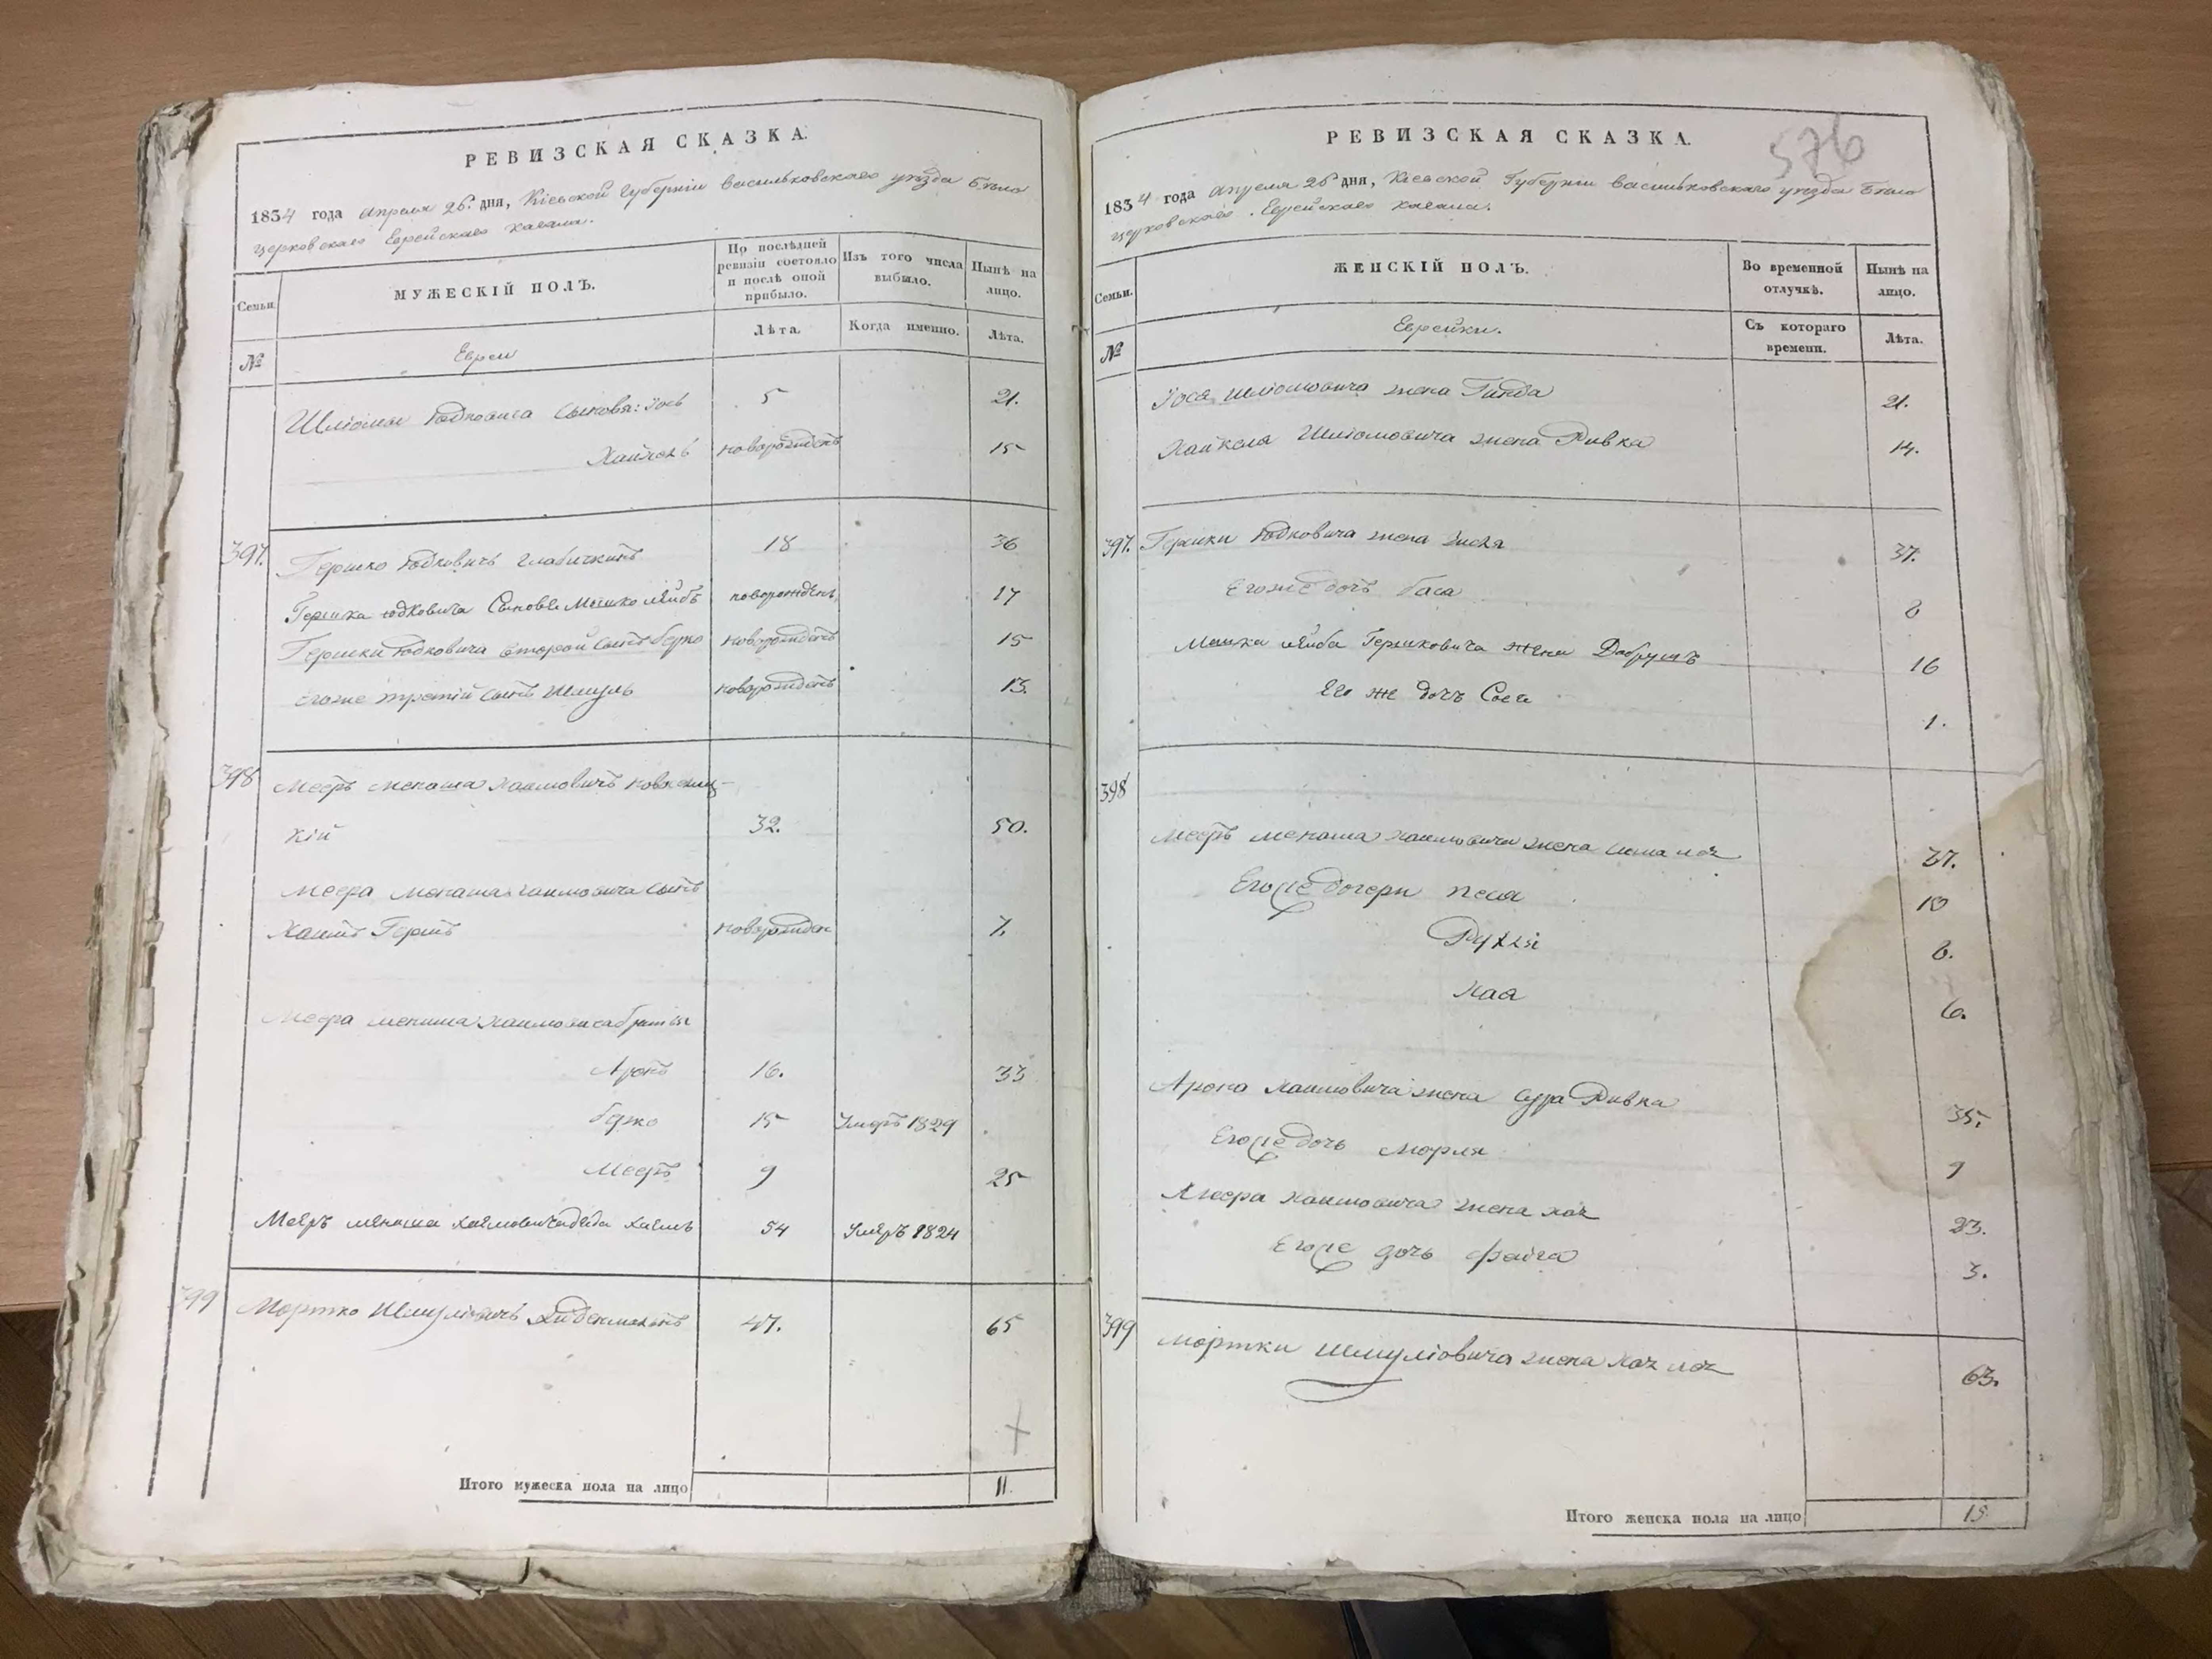 РЕВИЗСКАЯ СКАЗКА.
1834 года апреля 25 дня, Кіевской Губерніи Васильковскаго уѣзда Бѣло
церковскаго Еврейскаго кагала.
Семьи.
МУЖЕСКІЙ ПОЛЪ.
По послѣдней ревизіи состояло и послѣ оной прибыло.
Изъ того числа выбыло.
Нынѣ на лицо.
№
Евреи
Лѣта.
Когда именно.
Лѣта.
Шліомы Юдковича сыновя: Іось 5 21.
Хайкель новорожденъ 15
397. Гершко Юдковичъ 18 36
Гершка Юдковича сыновья Мошко Лейбъ новорожденъ 17
Гершки Юдковича второй сынъ Берко новорожденъ 15
Егоже третій сынъ Шмуль новорожденъ 13.
398 Мееръ Менаша Хаимовичъ
кій 32. 50.
Меера Менаша Хаимовича сынъ
Хаимъ Гершъ новорожден 7.
Меера Менаша Хаимовича братія
Аронъ 16. 33
Берко 15 Умеръ 1829
Мееръ 9 25
Мееръ Менаша Хаимовича деда Хаимъ 54 Умеръ 1824
399 Мортко Шмуліовичъ 47. 65
Итого мужеска пола на лицо 11.
РЕВИЗСКАЯ СКАЗКА.
576
1834 года апреля 25 дня, Кіевской Губерніи Васильковскаго уѣзда Бѣло
церковскаго Еврейскаго кагала.
Семьи.
ЖЕНСКІЙ ПОЛЪ.
Во временной отлучкѣ.
Нынѣ на лицо.
№
Еврейки.
Съ котораго времени.
Лѣта.
Іося Шліомовича жена Гинда 21.
Хайкеля Шліомовича жена Ривка 14.
397. Гершки Юдковича жена 37.
Егоже дочь Бася 8
Мошка Лейба Гершковича жена Добрушъ 16
Его же дочъ 1.
398
Мееръ Менаша Хаимовича жена 37.
Егоже дочери Песя 10
Рухля 8.
Хая 6.
Арона Хаимовича жена Сура Ривка 35.
Егоже дочь 9
Меера Хаимовича жена Хая 23.
Егоже дочь Фейга 3.
399 Мортки Шмуліовича жена Хая Лея 63.
Итого женска пола на лицо 15.